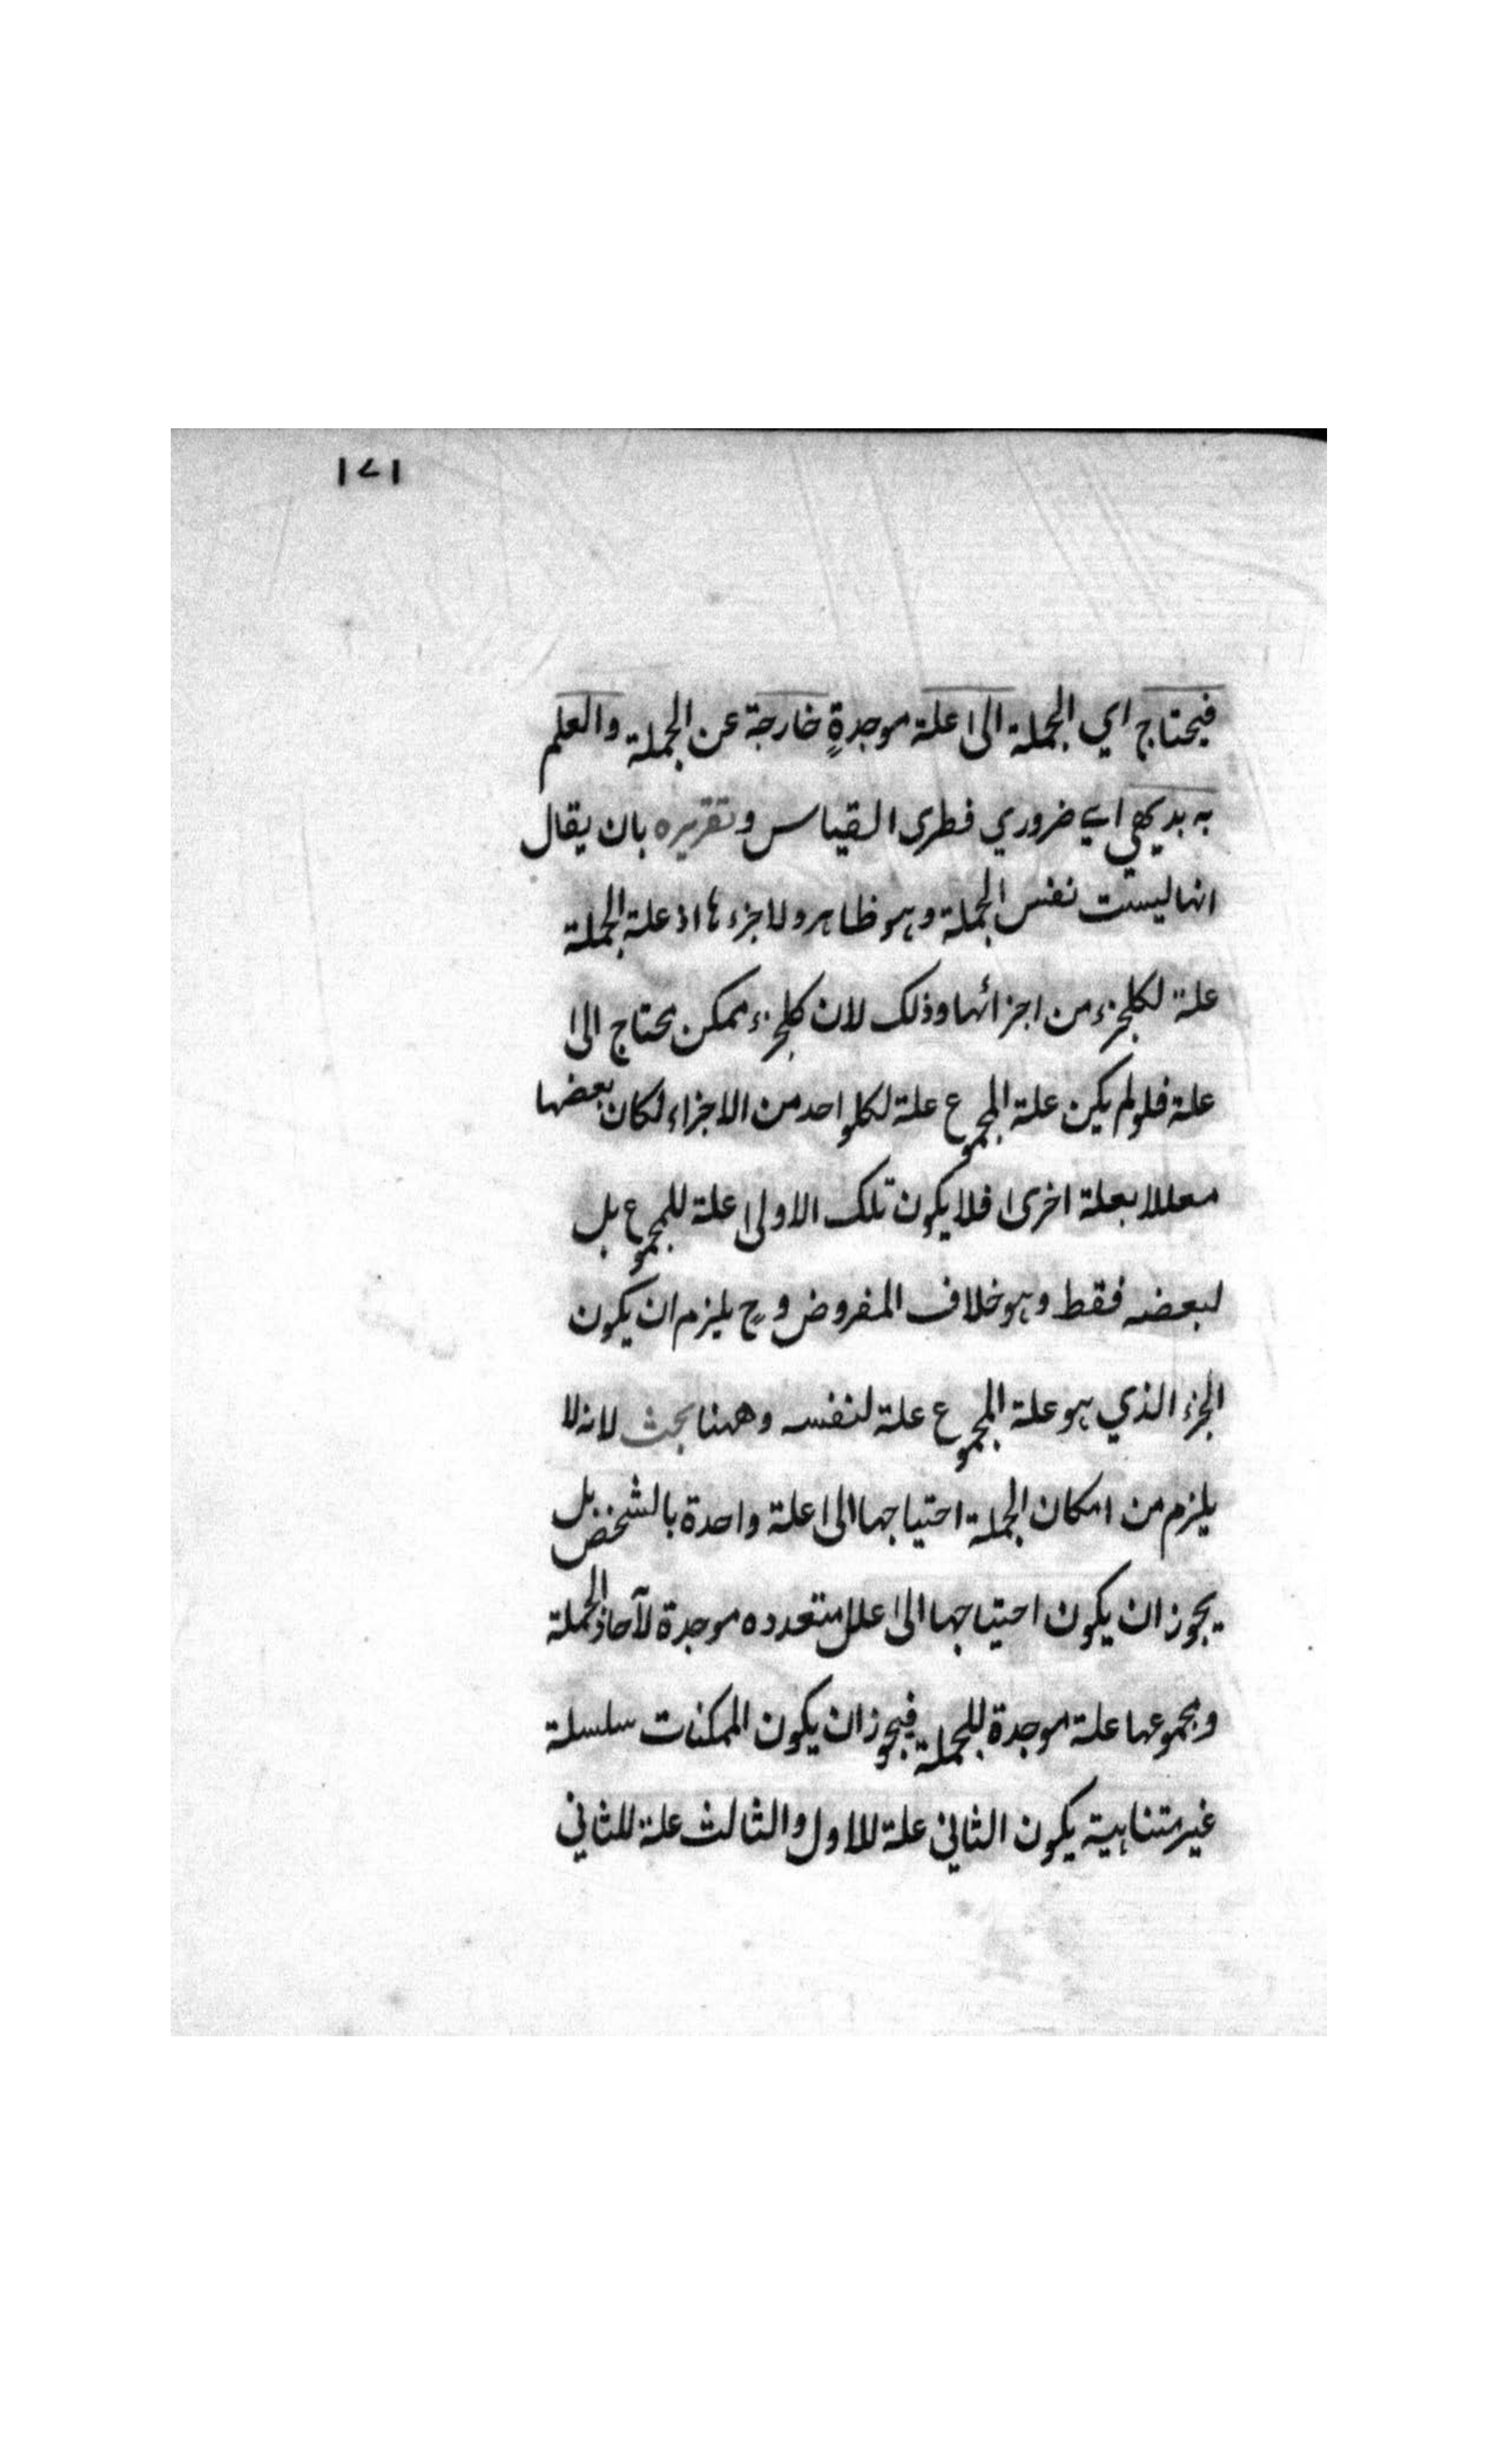 ١٤١
فيحتاج اي الجملة الى علة موجدةٍ خارجة عن الجملة والعلم
به بديهي اي ضروري فطرى القياس وتقريره بان يقال
انها ليست نفس الجملة وهو ظاهر ولا جزءها اذ علة الجملة
علة لكلجزء من اجزائها وذلك لان كلجزء ممكن يحتاج الى
علة فلو لم يكن علة المجموع علة لكلواحد من الاجزاء لكان بعضها
معللا بعلة اخرى فلا يكون تلك الاولى علة للمجموع بل
لبعضه فقط وهو خلاف المفروض وح يلزم ان يكون
الجزء الذي هو علة المجموع علة لنفسه وههنا بحث لانه لا
يلزم من امكان الجملة احتياجها الى علة واحدة بالشخص بل
يجوز ان يكون احتياجها الى علل متعدده موجدة لآحاد الجملة
ومجموعها علة موجدة للجملة فيجوز ان يكون الممكنات سلسلة
غير متناهية يكون الثاني علة للاول والثالث علة للثاني